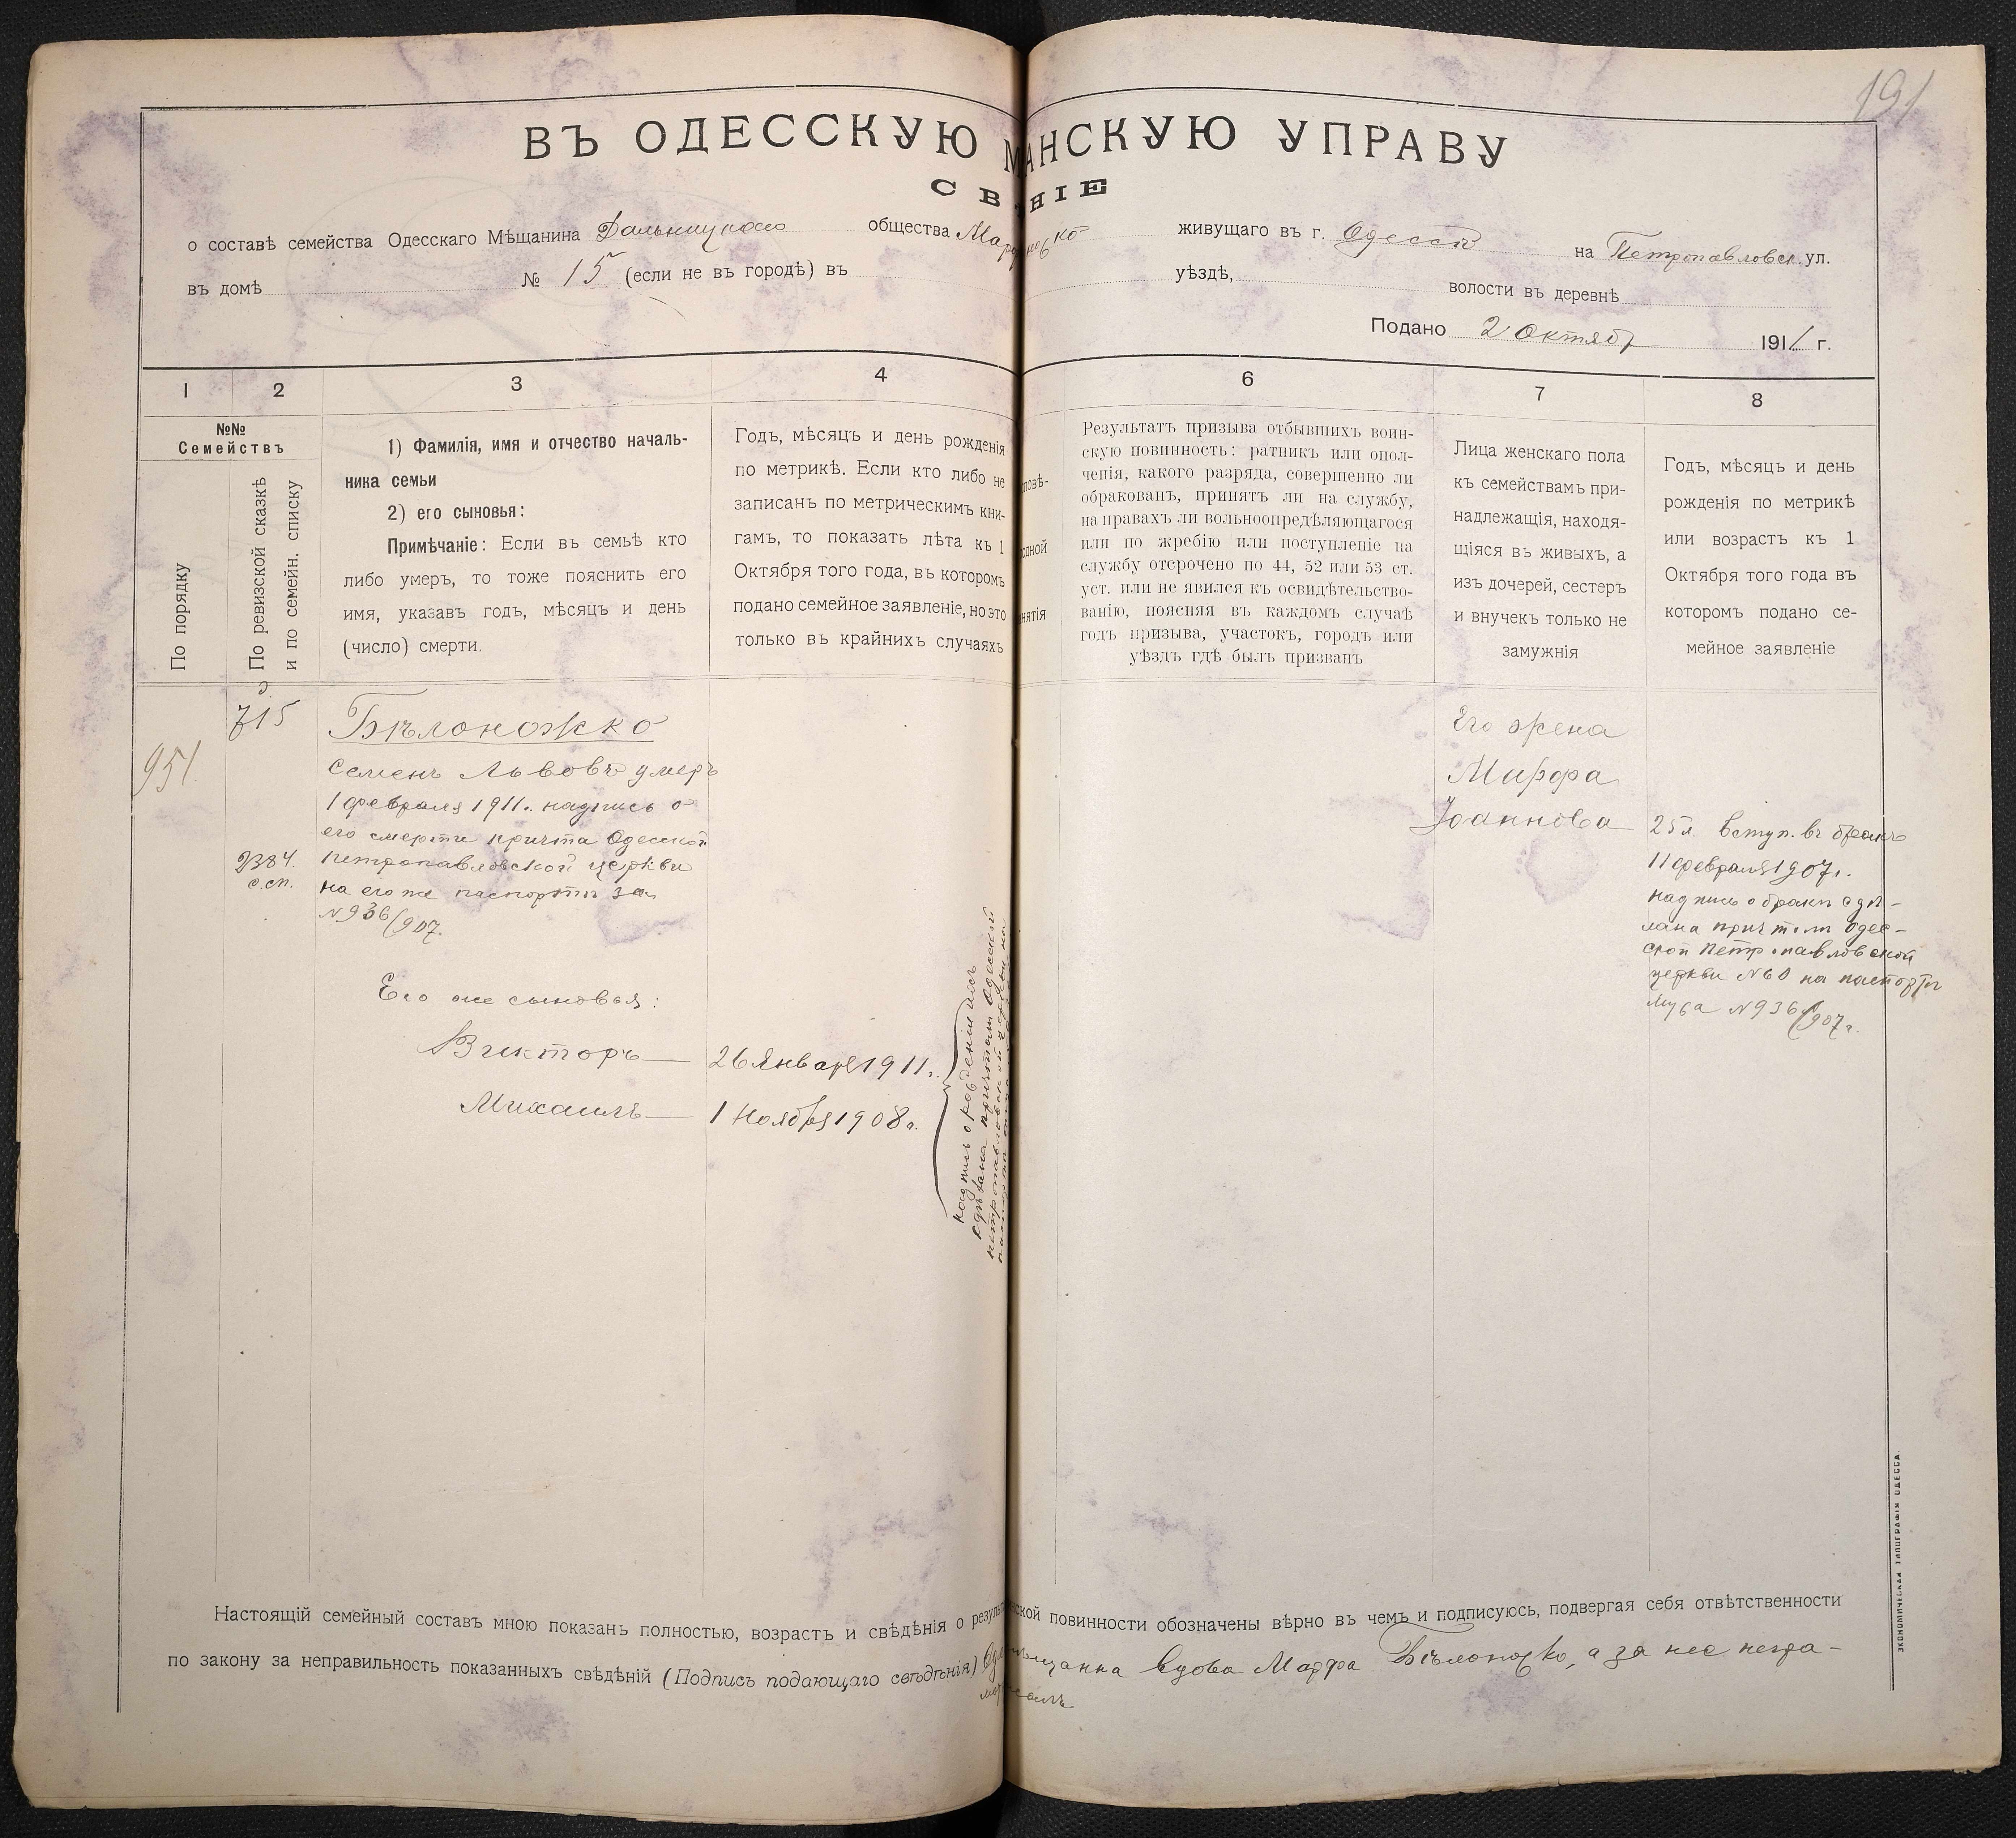 191
ВЪ ОДЕССКУЮ М АНСКУЮ УПРАВУ
СВ НІЕ
о составѣ семейства Одесскаго Мѣщанина Дальницкаго общества живущаго въ г. Одессѣ на Петропавловск. ул.
въ домѣ № 15 (если не въ городѣ) въ уѣздѣ, волости въ деревнѣ
Подано 2 Октябр 1911 г.
1 2 3 4 6 7 8
№№
Семействъ
По порядку
По ревизской сказкѣ
и по семейн. списку
1) Фамилія, имя и отчество началь-
ника семьи
2) его сыновья:
Примѣчаніе: Если въ семьѣ кто
либо умеръ, то тоже пояснить его
имя, указавъ годъ, мѣсяцъ и день
(число) смерти.
Годъ, мѣсяцъ и день рожденія
по метрикѣ. Если кто либо не
записанъ по метрическимъ кни-
гамъ, то показать лѣта къ 1
Октября того года, въ которомъ
подано семейное заявленіе, но это
только въ крайнихъ случаяхъ
повѣ-
одной
нятія
Результатъ призыва отбывшихъ воин-
скую повинность: ратникъ или опол-
ченія, какого разряда, совершенно ли
обракованъ, принятъ ли на службу,
на правахъ ли вольноопредѣляющагося
или по жребію или поступленіе на
службу отсрочено по 44, 52 или 53 ст.
уст. или не явился къ освидѣтельство-
ванію, поясняя въ каждомъ случаѣ
годъ призыва, участокъ, городъ или
уѣздъ гдѣ былъ призванъ
Лица женскаго пола
къ семействамъ при-
надлежащія, находя-
щіяся въ живыхъ, а
изъ дочерей, сестеръ
и внучекъ только не
замужнія
Годъ, мѣсяцъ и день
рожденія по метрикѣ
или возрастъ къ 1
Октября того года въ
которомъ подано се-
мейное заявленіе
951
715
2384.
с.сп.
Бѣлоножко
Семенъ Львовъ умеръ
1 февраля 1911г. надпись о
его смерти причта Одесской
Петропавловской церкви
на его же паспортѣ за
№ 936/907.
Его же сыновья:
Викторъ — 26 Января 1911г.
Михаилъ — 1 Ноября 1908г.
надпись о рожденіи ихъ
сдѣлана причтомъ Одесской
Петропавловской церкви на
Его жена
Марфа
Іоаннова
25 л. вступ. въ бракъ
11 февраля 1907г.
надпись о бракѣ сдѣ-
лана причтомъ Одес-
ской Петропавловской
церкви № 60 на паспортѣ
мужа № 936/907г.
Настоящій семейный составъ мною показанъ полностью, возрастъ и свѣдѣнія о резуль нской повинности обозначены вѣрно въ чемъ и подписуюсь, подвергая себя отвѣтственности
по закону за неправильность показанныхъ свѣдѣній (Подпись подающаго свѣдѣнія) Од мѣщанка вдова Марфа Бѣлоножко, а за нее негра-
ЭКОНОМИЧЕСКАЯ ТИПОГРАФІЯ ОДЕССА.